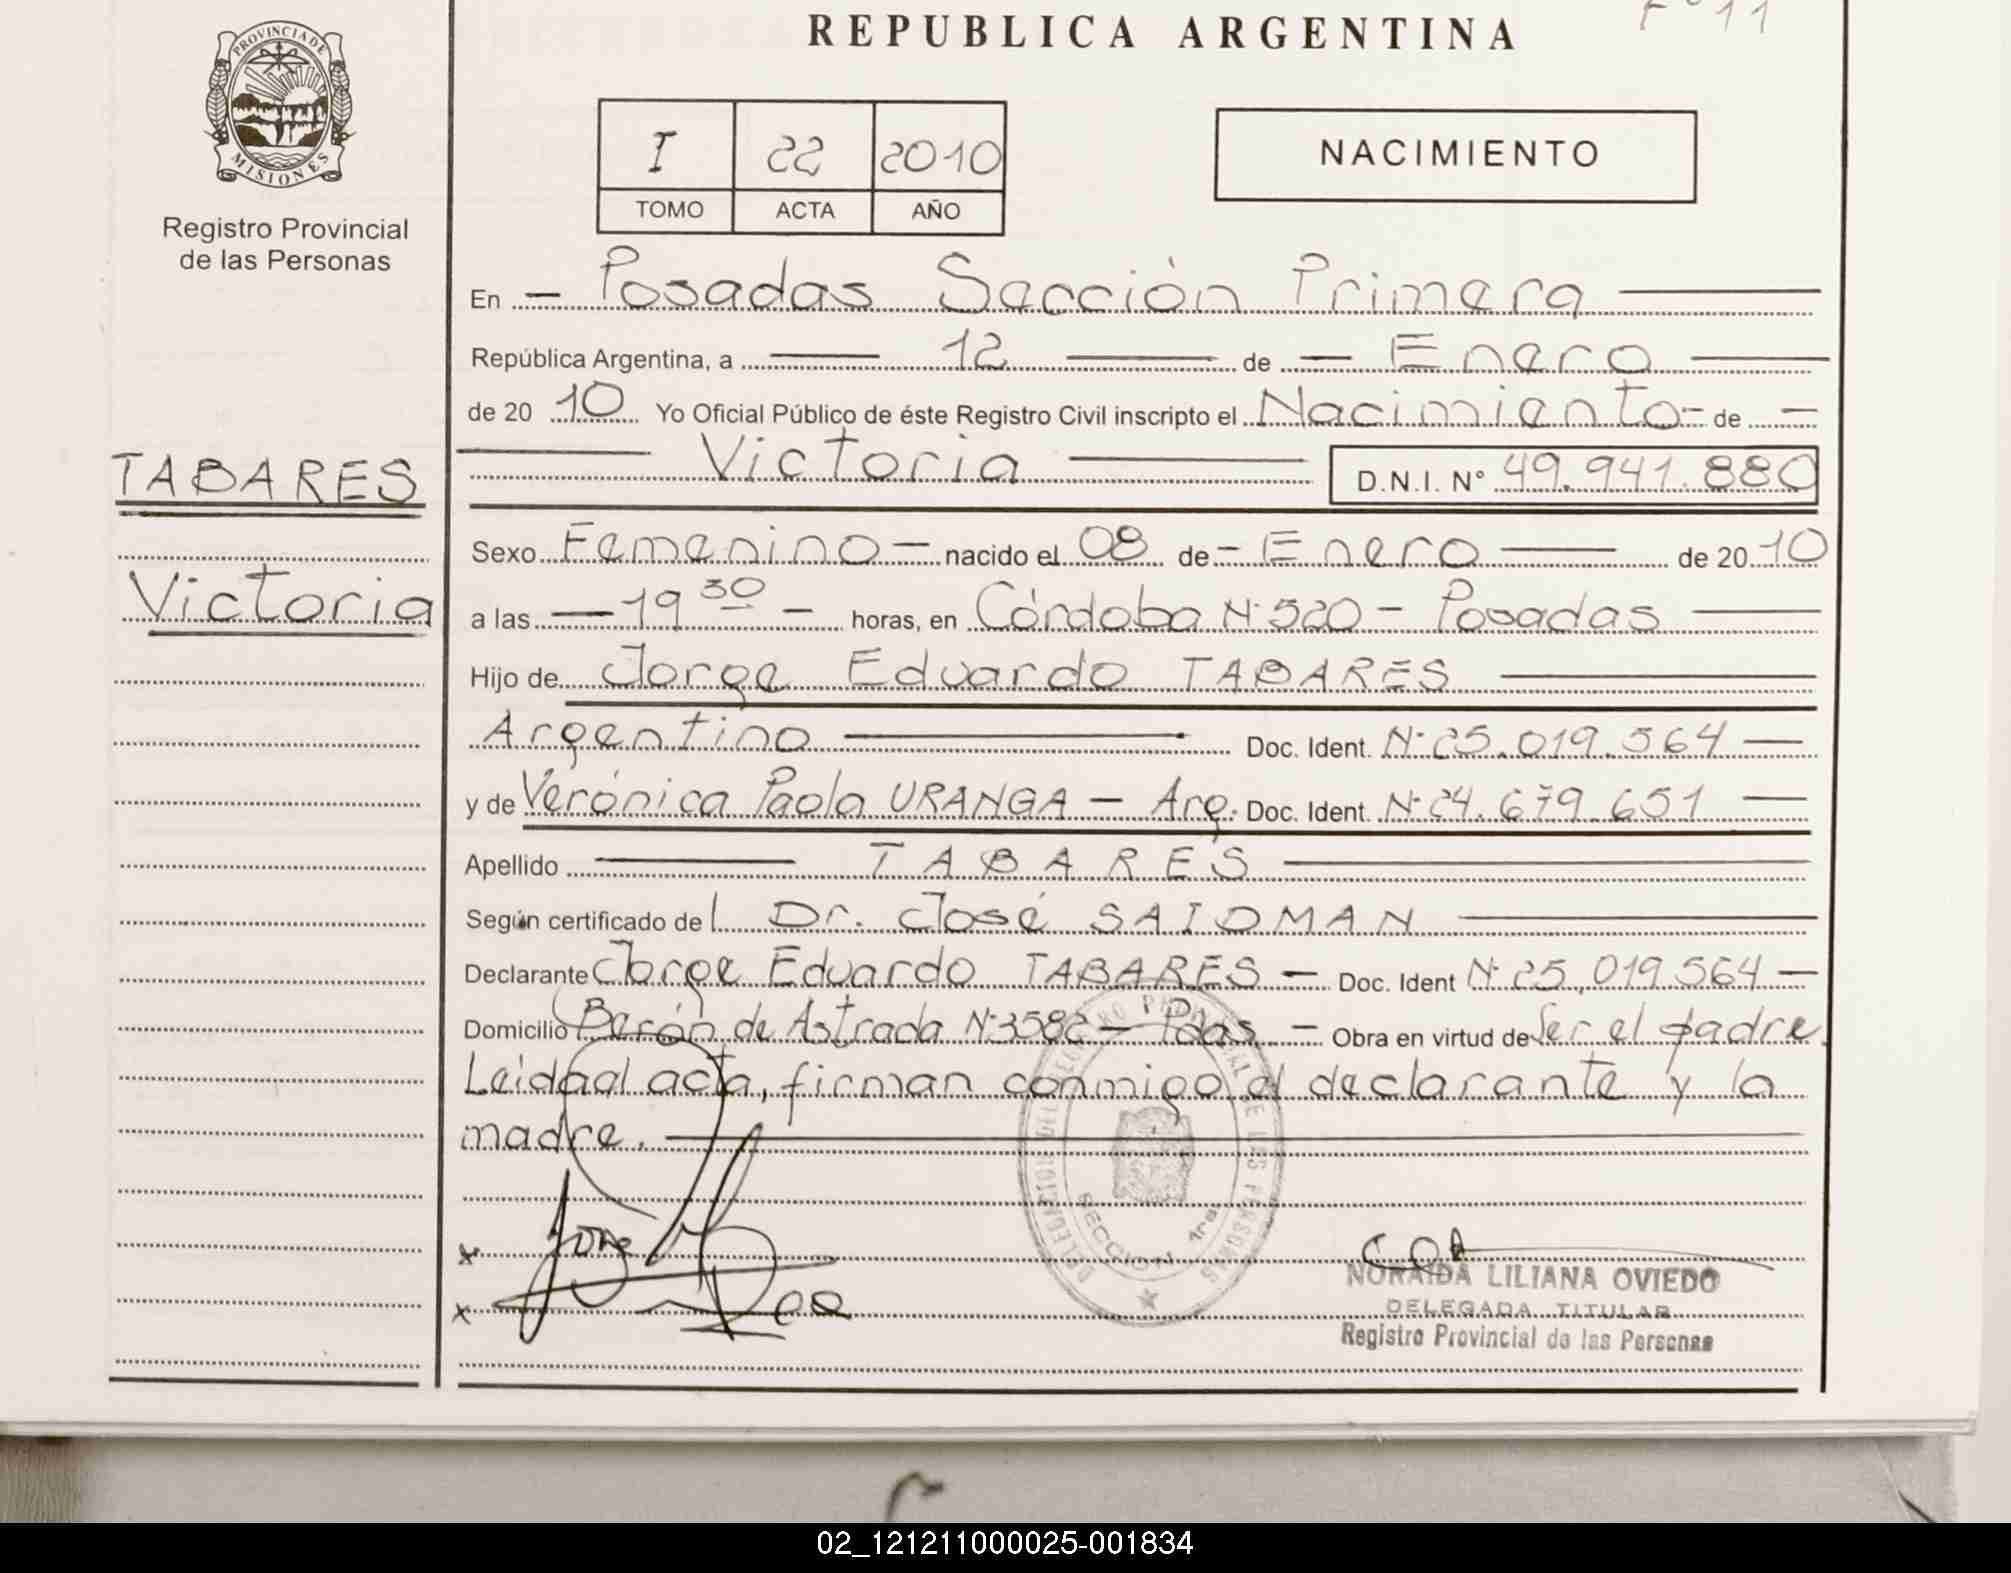 REPUBLICA ARGENTINA
Fº 11
PROVINCIA DE
MISIONES
Registro Provincial
de las Personas
I 22 2010
TOMO ACTA AÑO
NACIMIENTO
En - Posadas Sección Primera
República Argentina, a 12 de - Enero
de 20 10 Yo Oficial Público de éste Registro Civil inscripto el Nacimiento - de -
Victoria D.N.I. N° 49.941.880
TABARES
Victoria
Sexo Femenino - nacido el 08 de - Enero de 20 10
a las - 19 30 - horas, en Córdoba Nº 520 - Posadas
Hijo de Jorge Eduardo TABARES
Argentino Doc. Ident. Nº 25.019.564
y de Verónica Paola URANGA - Arg. Doc. Ident. Nº 24.679.651
Apellido TABARES
Según certificado del Dr. José SAIDMAN
Declarante Jorge Eduardo TABARES - Doc. Ident Nº 25.019.564
Domicilio Berón de Astrada Nº 3582 - Pdas. - Obra en virtud de Ser el padre.
Leida al acta, firman conmigo el declarante y la
madre.
SECCION 1ra
NORAIDA LILIANA OVIEDO
DELEGADA TITULAR
Registro Provincial de las Personas
02_121211000025-001834